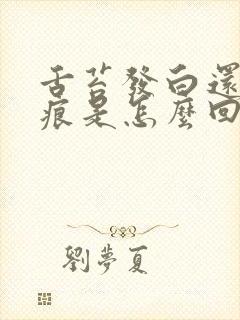 舌苔發白還
痕是怎麼回
劉夢夏